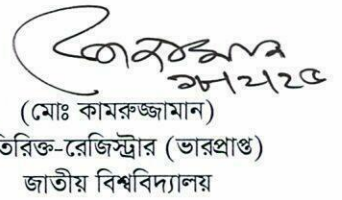 ১৮/২/২৫
(মোঃ কামরুজ্জামান)
তিরিক্ত-রেজিস্ট্রার (ভারপ্রাপ্ত)
জাতীয় বিশ্ববিদ্যালয়